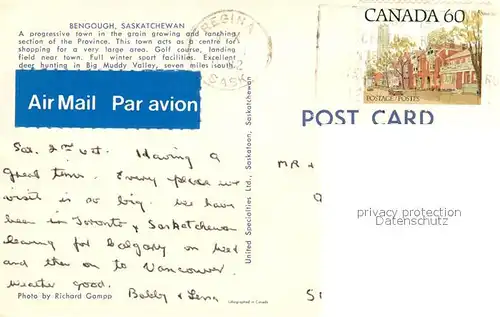 BENGOUGH, SASKATCHEWAN
A progressive town in the grain growing and ranching
section of the Province. This town acts as a centre for
shopping for a very large area. Golf course, landing
field near town. Full winter sport facilities. Excellent
deer hunting in Big Muddy Valley, seven miles south.
REGINA
SASK
CANADA 60
POSTAGE/POSTES
Air Mail Par avion
POST CARD
Sat. 2nd oct. Having a
great time. Every place we
visit is so big. We have
been in Toronto & Saskatchewan
leaving for Calgary on Wed
and then on to Vancouver
weather good.
Bobby & Lena
MR &
Photo by Richard Gompp
Lithographed in Canada
United Specialties Ltd., Saskatoon, Saskatchewan
privacy protection
Datenschutz